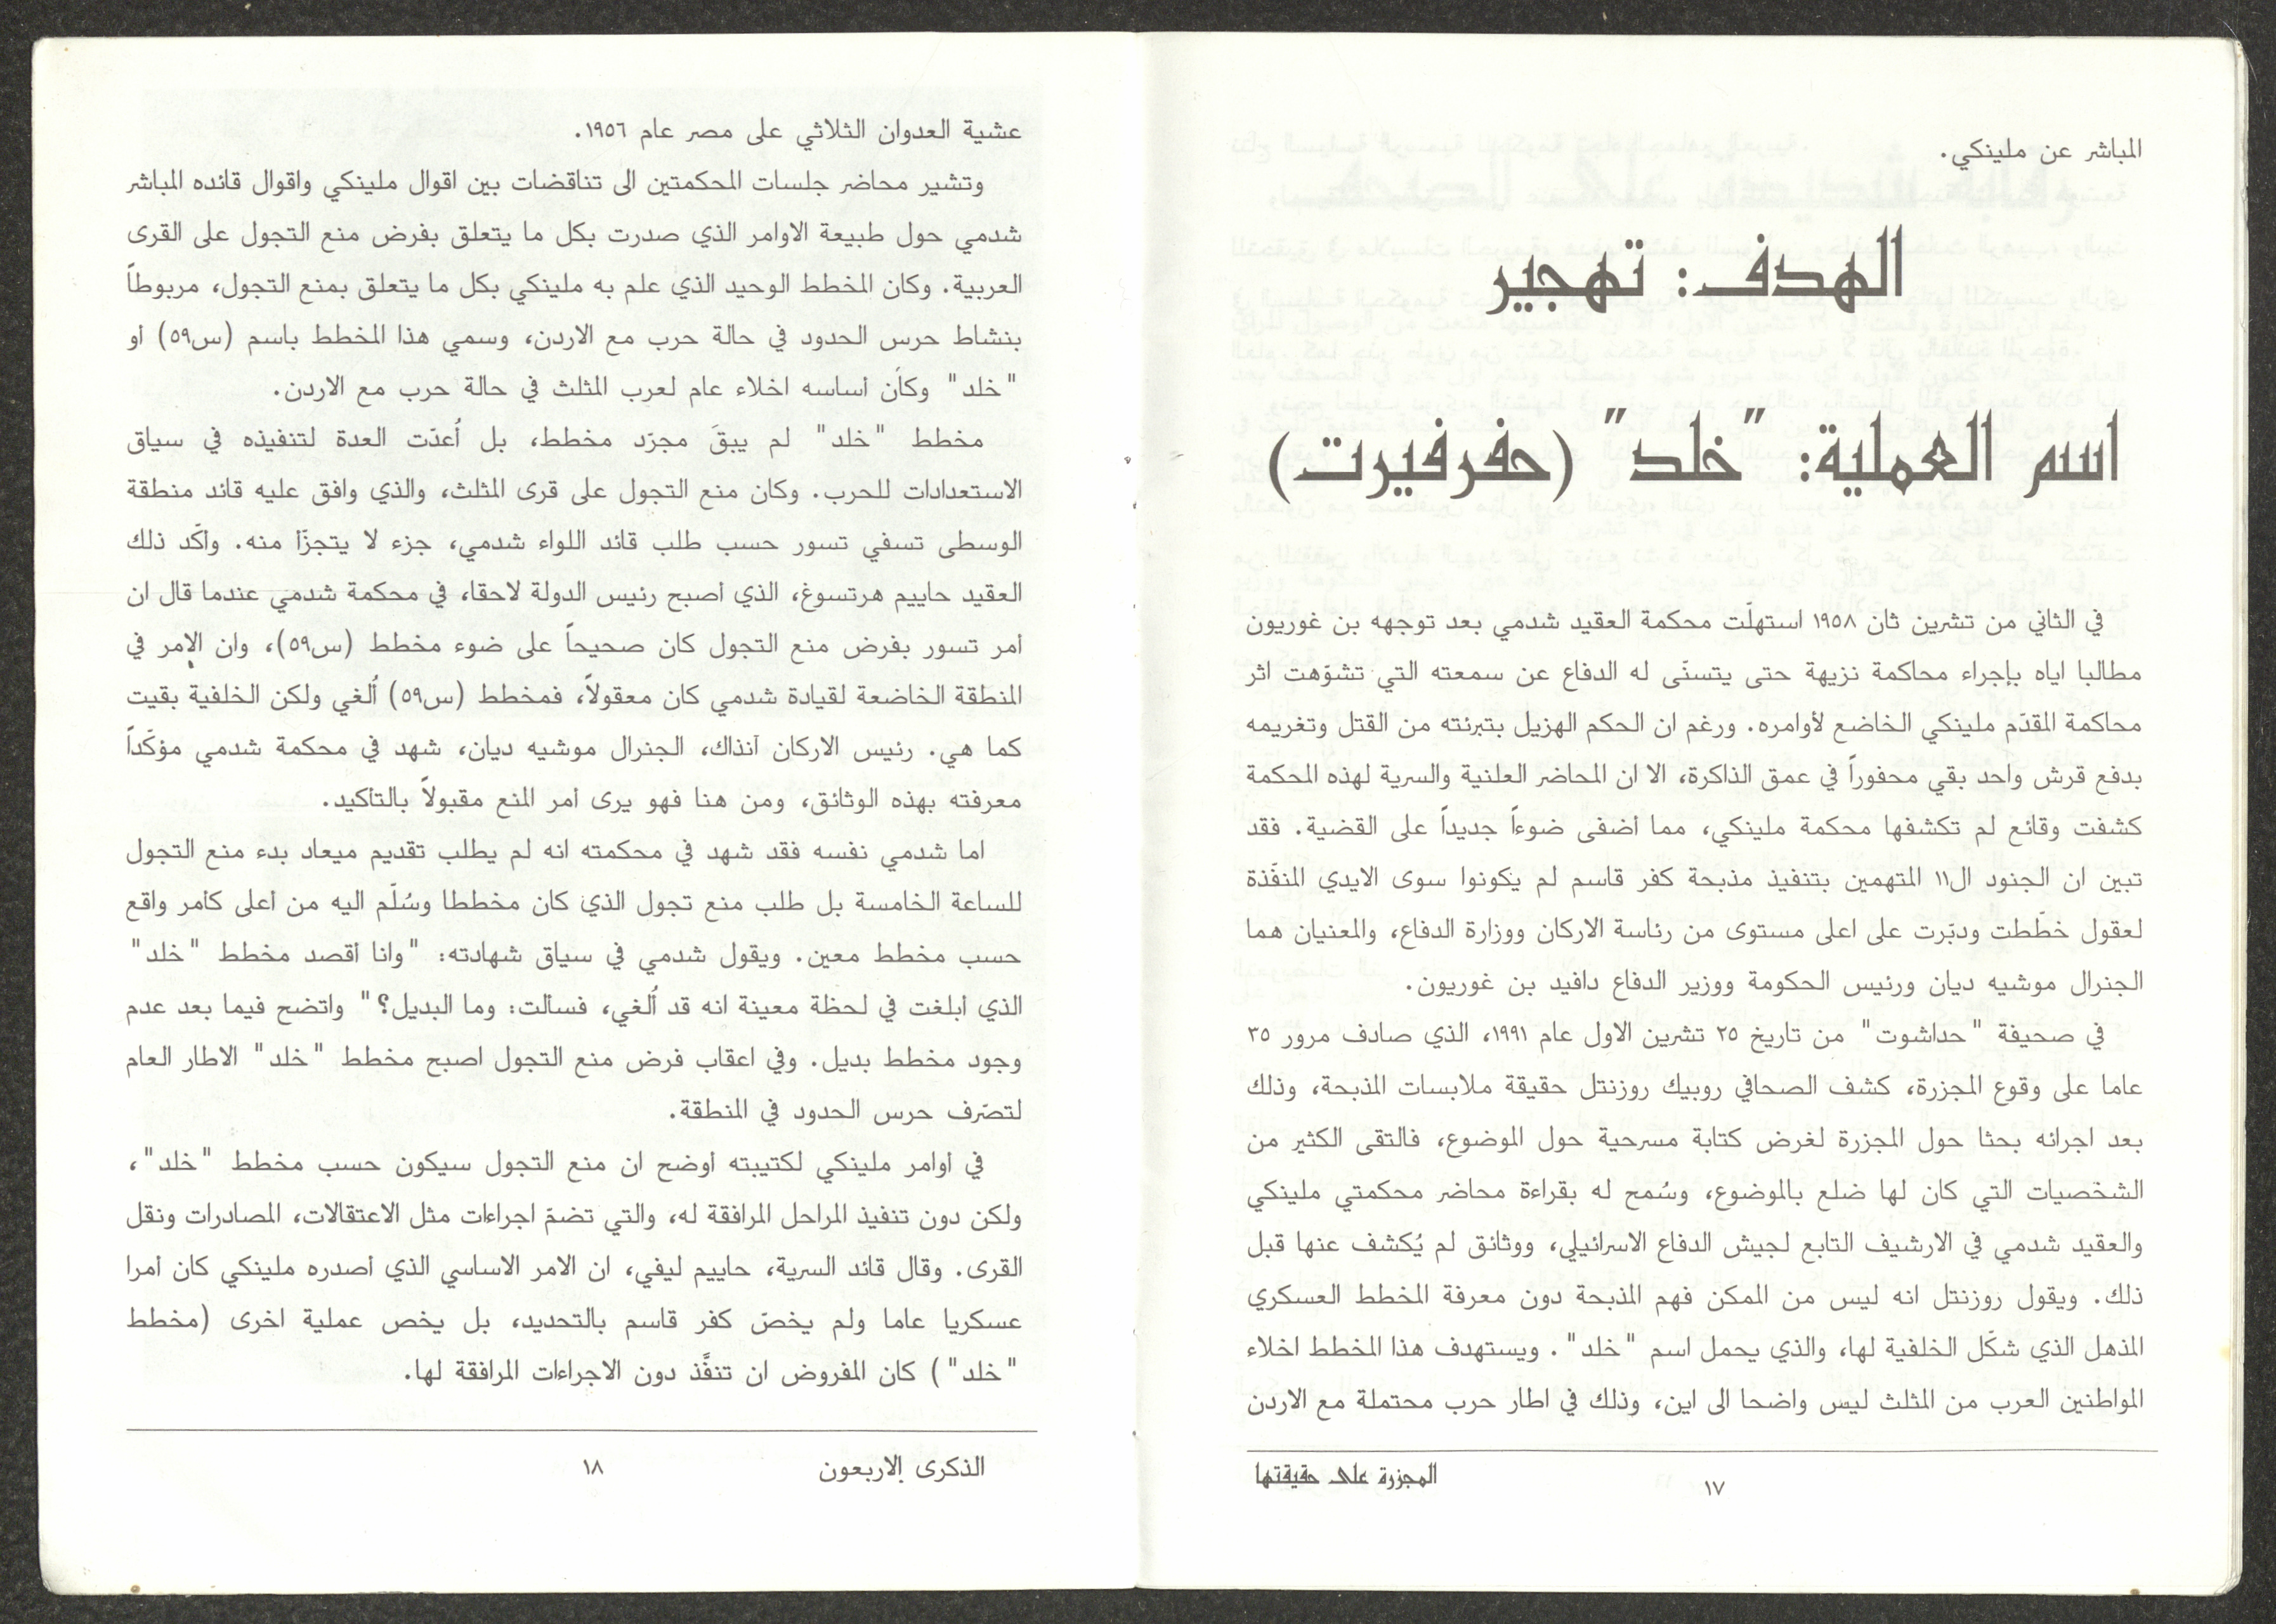 المباشر عن ملينكي.
الهدف: تهجير
اسم العملية: "خلد" (حفرفيرت)
في الثاني من تشرين ثان ١٩٥٨ استهلّت محكمة العقيد شدمي بعد توجهه بن غوريون
مطالبا اياه بإجراء محاكمة نزيهة حتى يتسنّى له الدفاع عن سمعته التي تشوّهت اثر
محاكمة المقدّم ملينكي الخاضع لأوامره. ورغم ان الحكم الهزيل بتبرئته من القتل وتغريمه
بدفع قرش واحد بقي محفوراً في عمق الذاكرة، الا ان المحاضر العلنية والسرية لهذه المحكمة
كشفت وقائع لم تكشفها محكمة ملينكي، مما أضفى ضوءاً جديداً على القضية. فقد
تبين ان الجنود ال١١ المتهمين بتنفيذ مذبحة كفر قاسم لم يكونوا سوى الايدي المنفّذة
لعقول خطّطت ودبّرت على اعلى مستوى من رئاسة الاركان ووزارة الدفاع، والمعنيان هما
الجنرال موشيه ديان ورئيس الحكومة ووزير الدفاع دافيد بن غوريون.
في صحيفة "حداشوت" من تاريخ ٢٥ تشرين الاول عام ١٩٩١، الذي صادف مرور ٣٥
عاما على وقوع المجزرة، كشف الصحافي روبيك روزنتل حقيقة ملابسات المذبحة، وذلك
بعد اجرائه بحثا حول المجزرة لغرض كتابة مسرحية حول الموضوع، فالتقى الكثير من
الشخصيات التي كان لها ضلع بالموضوع، وسُمح له بقراءة محاضر محكمتي ملينكي
والعقيد شدمي في الارشيف التابع لجيش الدفاع الاسرائيلي، ووثائق لم يُكشف عنها قبل
ذلك. ويقول روزنتل انه ليس من الممكن فهم المذبحة دون معرفة المخطط العسكري
المذهل الذي شكّل الخلفية لها، والذي يحمل اسم "خلد". ويستهدف هذا المخطط اخلاء
المواطنين العرب من المثلث ليس واضحا الى اين، وذلك في اطار حرب محتملة مع الاردن
المجزرة على حقيقتها
١٧
عشية العدوان الثلاثي على مصر عام ١٩٥٦.
وتشير محاضر جلسات المحكمتين الى تناقضات بين اقوال ملينكي واقوال قائده المباشر
شدمي حول طبيعة الاوامر الذي صدرت بكل ما يتعلق بفرض منع التجول على القرى
العربية. وكان المخطط الوحيد الذي علم به ملينكي بكل ما يتعلق بمنع التجول، مربوطاً
بنشاط حرس الحدود في حالة حرب مع الاردن، وسمي هذا المخطط باسم (س٥٩) او
"خلد" وكان أساسه اخلاء عام لعرب المثلث في حالة حرب مع الاردن.
مخطط "خلد" لم يبقَ مجرّد مخطط، بل أُعدّت العدة لتنفيذه في سياق
الاستعدادات للحرب. وكان منع التجول على قرى المثلث، والذي وافق عليه قائد منطقة
الوسطى تسفي تسور حسب طلب قائد اللواء شدمي، جزء لا يتجزّأ منه. وأكّد ذلك
العقيد حاييم هرتسوغ، الذي أصبح رئيس الدولة لاحقا، في محكمة شدمي عندما قال ان
أمر تسور بفرض منع التجول كان صحيحاً على ضوء مخطط (س٥٩)، وان الامر في
المنطقة الخاضعة لقيادة شدمي كان معقولاً، فمخطط (س٥٩) أُلغي ولكن الخلفية بقيت
كما هي. رئيس الاركان آنذاك، الجنرال موشيه ديان، شهد في محكمة شدمي مؤكّداً
معرفته بهذه الوثائق، ومن هنا فهو يرى أمر المنع مقبولاً بالتأكيد.
اما شدمي نفسه فقد شهد في محكمته انه لم يطلب تقديم ميعاد بدء منع التجول
للساعة الخامسة بل طلب منع تجول الذي كان مخططا وسُلّم اليه من أعلى كأمر واقع
حسب مخطط معين. ويقول شدمي في سياق شهادته: "وانا أقصد مخطط "خلد"
الذي أبلغت في لحظة معينة انه قد أُلغي، فسألت: وما البديل؟" واتضح فيما بعد عدم
وجود مخطط بديل. وفي اعقاب فرض منع التجول اصبح مخطط "خلد" الاطار العام
لتصّرف حرس الحدود في المنطقة.
في أوامر ملينكي لكتيبته أوضح ان منع التجول سيكون حسب مخطط "خلد"،
ولكن دون تنفيذ المراحل المرافقة له، والتي تضمّ اجراءات مثل الاعتقالات، المصادرات ونقل
القرى. وقال قائد السرية، حاييم ليفي، ان الامر الاساسي الذي أصدره ملينكي كان أمرا
عسكريا عاما ولم يخصّ كفر قاسم بالتحديد، بل يخص عملية اخرى (مخطط
"خلد") كان المفروض ان تنفَّذ دون الاجراءات المرافقة لها.
الذكرى الاربعون
١٨